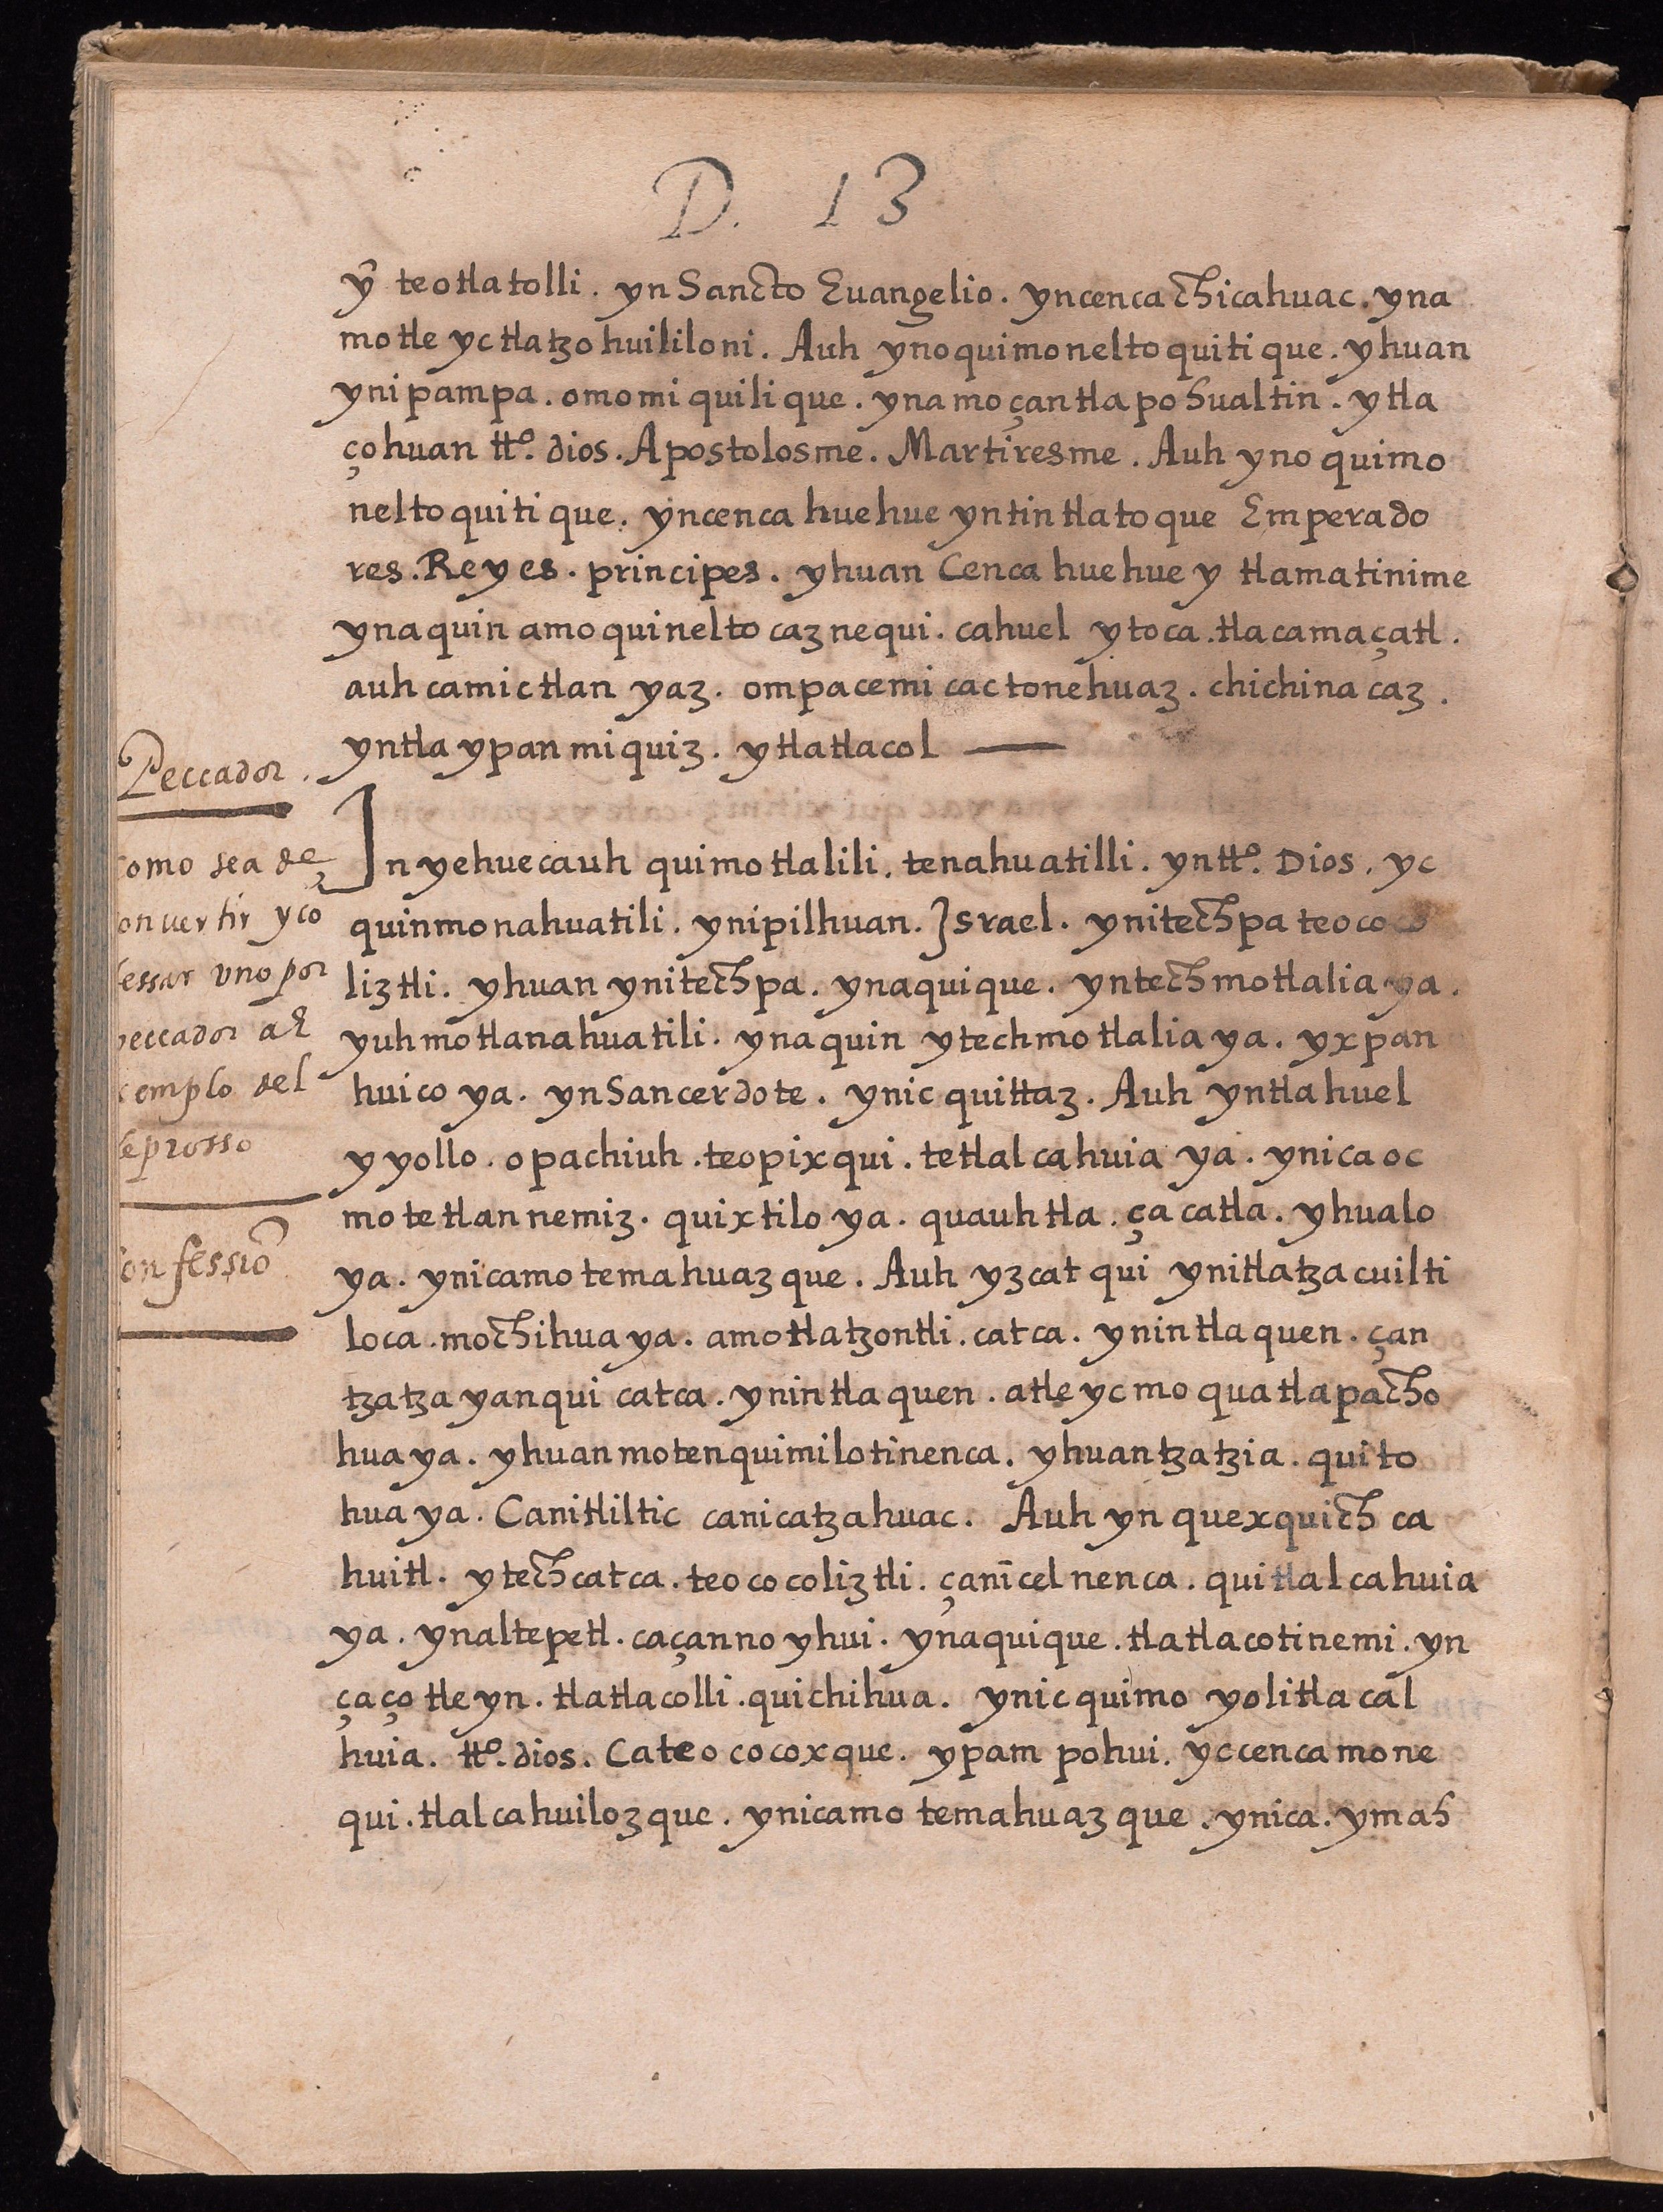 D. 13
ỹ teotlatolli. yn Sancto Euangelio. yncenca chicahuac. yna
motle yc tlatzohuililoni. Auh ynoquimoneltoquitique. yhuan
ynipampa. omomiquilique. ynamoçantlapohualtin. ytla
çohuan tt.º dios. Apostolosme. Martiresme. Auh yno quimo
neltoquitique. yncenca huehue yntintlatoque Emperado
res. Reyes. principes. yhuan Cenca huehuey tlamatinime
ynaquin amo quineltocaznequi. cahuel ytoca. tlacamaçatl.
auh camictlan yaz. ompacemicac tonehuaz. chichinacaz.
yntla ypan miquiz. ytlatlacol
Peccador.
como sea de
onuertir yco
fessar vno por
peccador al
xemplo del
leprosso
onfessiõ
In yehuecauh quimotlalili. tenahuatilli. yntt.º Dios. yc
quinmonahuatili. ynipilhuan. Israel. ynitechpa teococo
liztli. yhuan ynitechpa. ynaquique. yntechmotlaliaya.
yuhmotlanahuatili. ynaquin ytechmotlaliaya. yxpan
huicoya. ynSancerdote. ynic quittaz. Auh yntlahuel
yyollo. opachiuh. teopixqui. tetlalcahuiaya. ynicaoc
motetlannemiz. quixtiloya. quauhtla. çacatla. yhualo
ya. ynicamo temahuazque. Auh yzcatqui ynitlatzacuilti
loca. mochihuaya. amotlatzontli. catca. ynintlaquen. çan
tzatzayanqui catca. ynintlaquen. atle yc moquatlapacho
huaya. yhuan motenquimilotinenca. yhuan tzatzia. quito
huaya. Canitliltic canicatzahuac. Auh yn quexquich ca
huitl. ytechcatca. teococoliztli. çanīcel nenca. quitlalcahuia
ya. ynaltepetl. caçannoyhui. ynaquique. tlatlacotinemi. yn
çaçotleyn. tlatlacolli. quichihua. ynic quimo yolitlacal
huia. tt.º dios. Cateococoxque. ypam pohui. yccenca mone
qui. tlalcahuilozque. ynicamo temahuazque. ynica. ymah